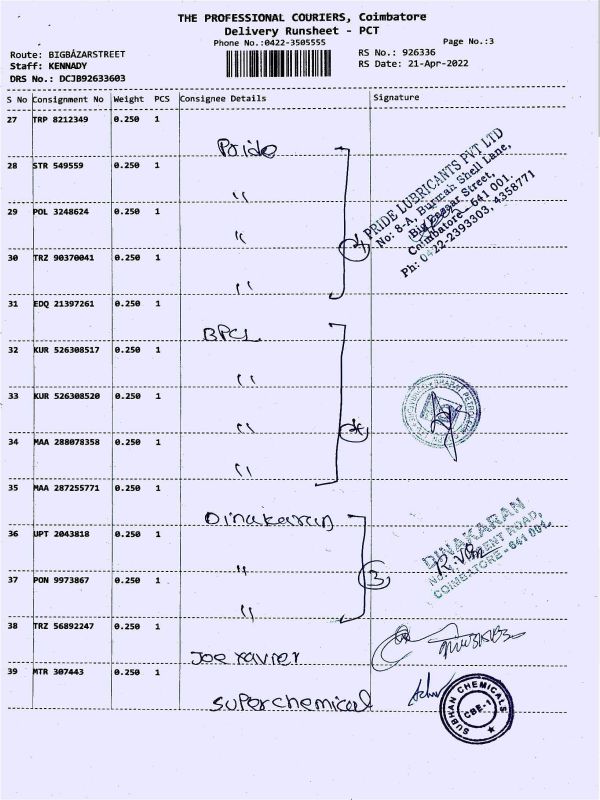 THE PROFESSIONAL COURIERS, Coimbatore
Delivery Runsheet - PCT
Phone No.:0422-3505555
Page No.:3
Route: BIGBAZARSTREET
Staff: KENNADY
DRS No.: DCJB92633603
RS No.: 926336
RS Date: 21-Apr-2022
S No Consignment No Weight PCS Consignee Details Signature
27 TRP 8212349 0.250 1
Pride
28 STR 549559 0.250 1
"
29 POL 3248624 0.250 1
"
30 TRZ 90370041 0.250 1
"
4
PRIDE LUBRICANTS PVT LTD
No: 8-A, Burmah Shell Lane,
Big Bazaar Street,
Coimbatore - 641 001.
Ph: 0422-2393303, 4358771
31 EDQ 21397261 0.250 1
BPCL
32 KUR 526308517 0.250 1
"
33 KUR 526308520 0.250 1
"
34 MAA 288078358 0.250 1
"
35 MAA 287255771 0.250 1
Dinakaran
36 UPT 2043818 0.250 1
"
37 PON 9973867 0.250 1
"
3
DINAKARAN
COIMBATORE - 641 001.
38 TRZ 56892247 0.250 1
Joe xavier
39 MTR 307443 0.250 1
Superchemical
SUBHAN CHEMICALS
CBE-1